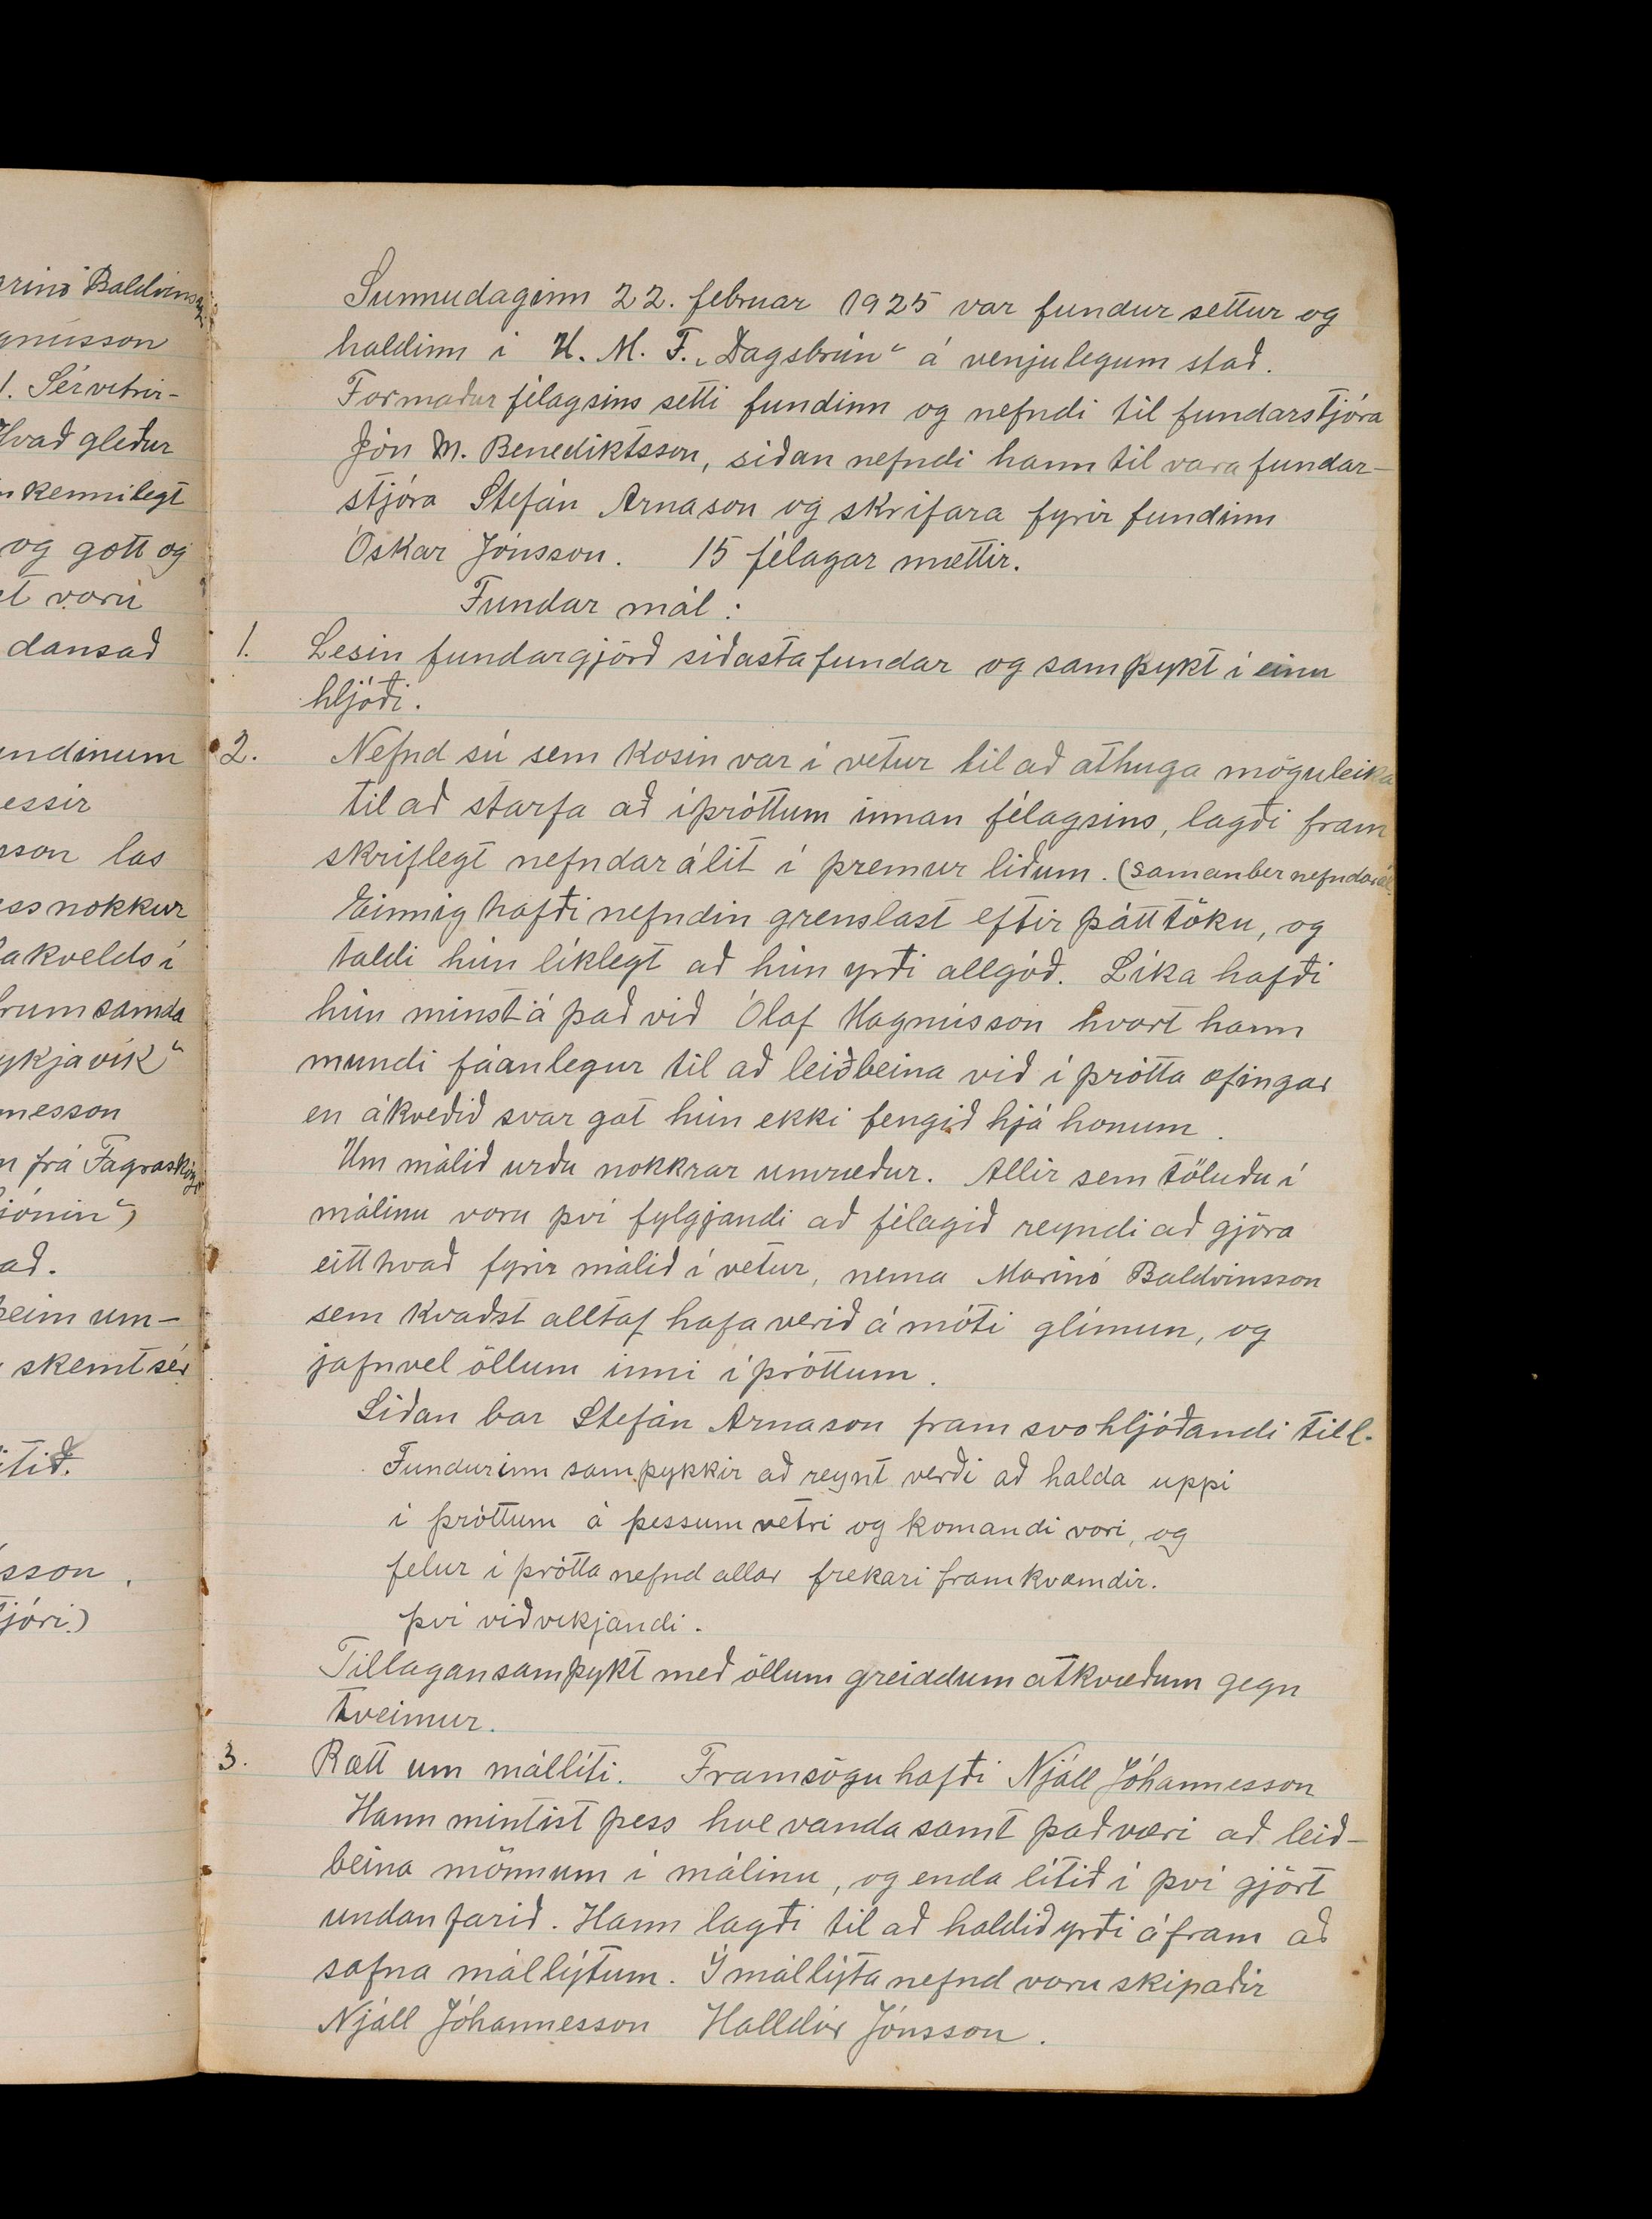 rinó Baldvinss
gnússon
Hvað gleður
kennilegt
og gott og
voru
dansað
undinum
essir
sson las
ess nokkur
akvelds í
rum samda
ykjavík"
nesson
frá Fagraskóg
sjónin"
að.
þeim um-
skemt sér
sson.
tjóri.)
Sunnudaginn 22. februar 1925 var fundur settur og
haldinn í U. M. F. „Dagsbrún" á venjulegum stað.
Formaður félagsins setti fundinn og nefndi til fundarstjóra
Jón M. Benediktsson, síðan nefndi hann til vara fundar-
stjóra Stefán Arnason og skrifara fyrir fundinn
Óskar Jónsson. 15 félagar mættir.
Fundar mál:
1. Lesin fundargjörð síðasta fundar og samþykt í einu
hljóði.
2. Nefnd sú sem kosin var í vetur til að athuga möguleika
til að starfa að íþróttum innan félagsins, lagði fram
skriflegt nefndarálit í þremur liðum. (samanber nefndarál.
Einnig hafði nefndin grenslast eftir þátttöku, og
taldi hún líklegt að hún yrði allgóð. Líka hafði
hún minst á það við Ólaf Magnússon hvort hann
mundi fáanlegur til að leiðbeina við íþrótta æfingar
en ákveðið svar gat hún ekki fengið hjá honum.
Um málið urðu nokkrar umræður. Allir sem töluðu í
málinu voru því fylgjandi að félagið reyndi að gjöra
eitthvað fyrir málið í vetur, nema Marinó Baldvinsson
sem kvaðst alltaf hafa verið á móti glímun, og
jafnvel öllum inni íþróttum.
Síðan bar Stefán Arnason fram svohljóðandi till.
Fundurinn samþykkir að reynt verði að halda uppi
íþróttum á þessum vetri og komandi vori, og
felur íþrótta nefnd allar frekari framkvæmdir.
því viðvíkjandi.
Tillagan samþykt með öllum greiddum atkvæðum gegn
tveimur.
3. Rætt um málliti. Framsögu hafði Njáll Jóhannesson
Hann mintist þess hve vandasamt það væri að leið-
beina mönnum í málinu, og enda lítið í því gjört
undanfarið. Hann lagði til að haldið yrði áfram að
safna mállýtum. Í mállýta nefnd voru skipaðir
Njáll Jóhannesson Halldór Jónsson.